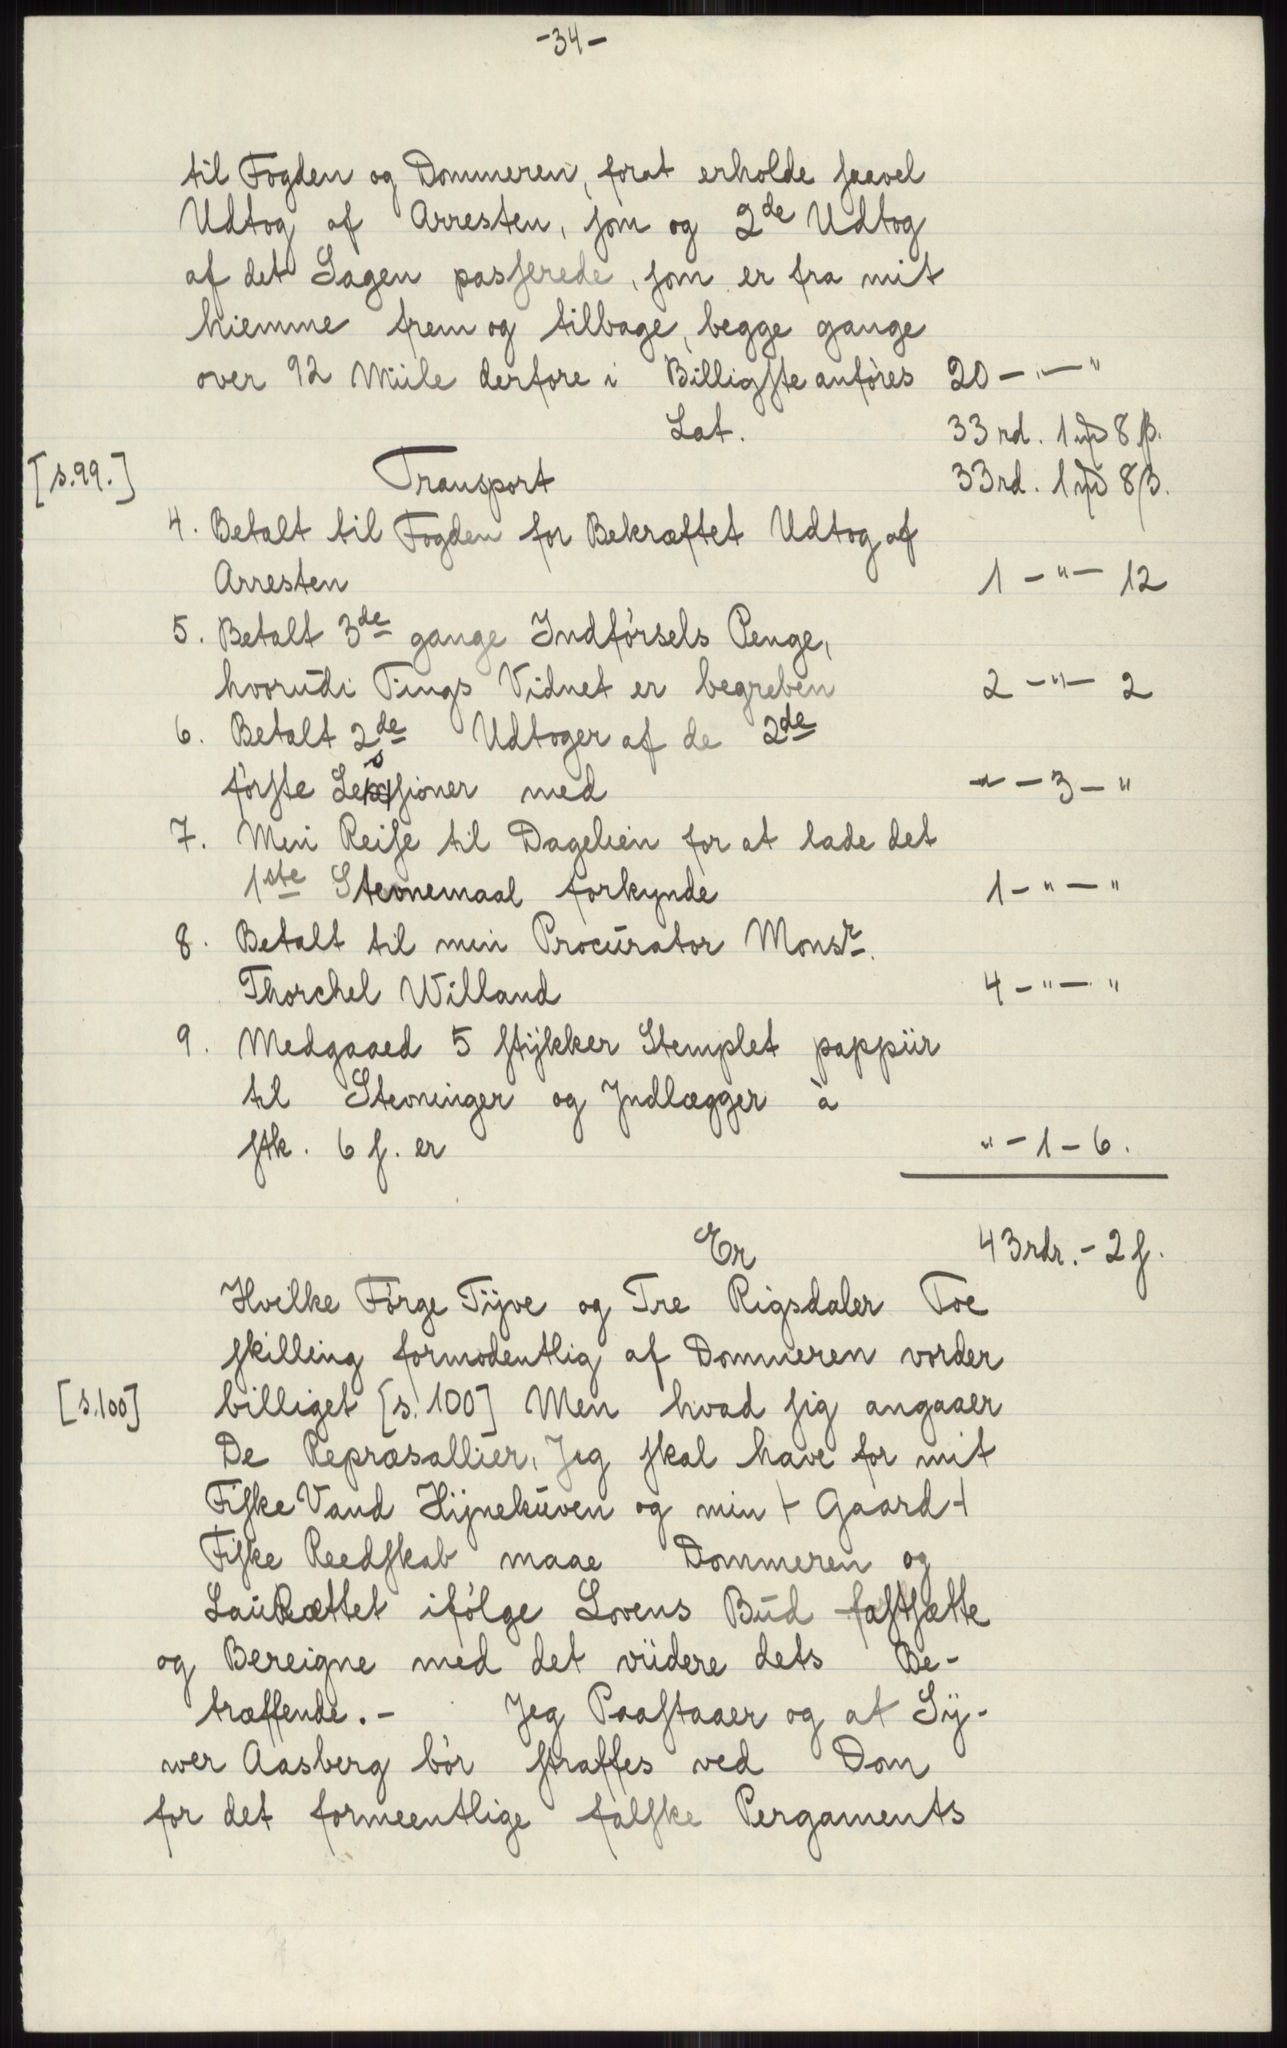 -34-
til Fogden og Dommeren, forat erholde saavel
Udtog af Arresten, som og 2de Udtog
af det Sagen passerede, som er fra mit
hiemme frem og tilbage, begge gange
over 92 Miile derfore i Billigste anføres 20 - " - "
Lat. 33 rd. 1 mꝶ 8 β.
[s.99.] Transport 33rd. 1 mꝶ 8 β.
4. Betalt til Fogden for Bekræftet Udtog af
Arresten 1 - " - 12
5. Betalt 3de gange Indførsels Penge,
hvorudi Tings Vidnet er begreben 2 - " - 2
6. Betalt 2de Udtoger af de 2de
første Sessioner med " - 3 - "
7. Min Reise til Dagelien for at lade det
1ste Stevnemaal forkynde 1 - " - "
8. Betalt til min Procurator Monsr.
Thorchel Willand 4 - " - "
9. Medgaaed 5 stÿkker Stemplet pappiir
til Stevninger og Jndlægger à
stk. 6 s. er " - 1 - 6.
Er 43 rdr. - 2 s.
Hvilke Førge Tÿve og Tre Rigsdaler Toe
skilling formodentlig af Dommeren vorder
[s.100] billiget [s.100] Men hvad sig angaaer
De Repræsallier, Jeg skal have for mit
Fiske Vand Hÿnekuven og min + Gaard +
Fiske Reedskab maae Dommeren og
LauRættet ifølge Lovens Bud fastsætte
og Bereigne med det viidere dets Be-
træffende. - Jeg Paastaaer og at Sÿ-
wer Aasberg bør straffes ved Dom
for det formeentlige falske Pergaments